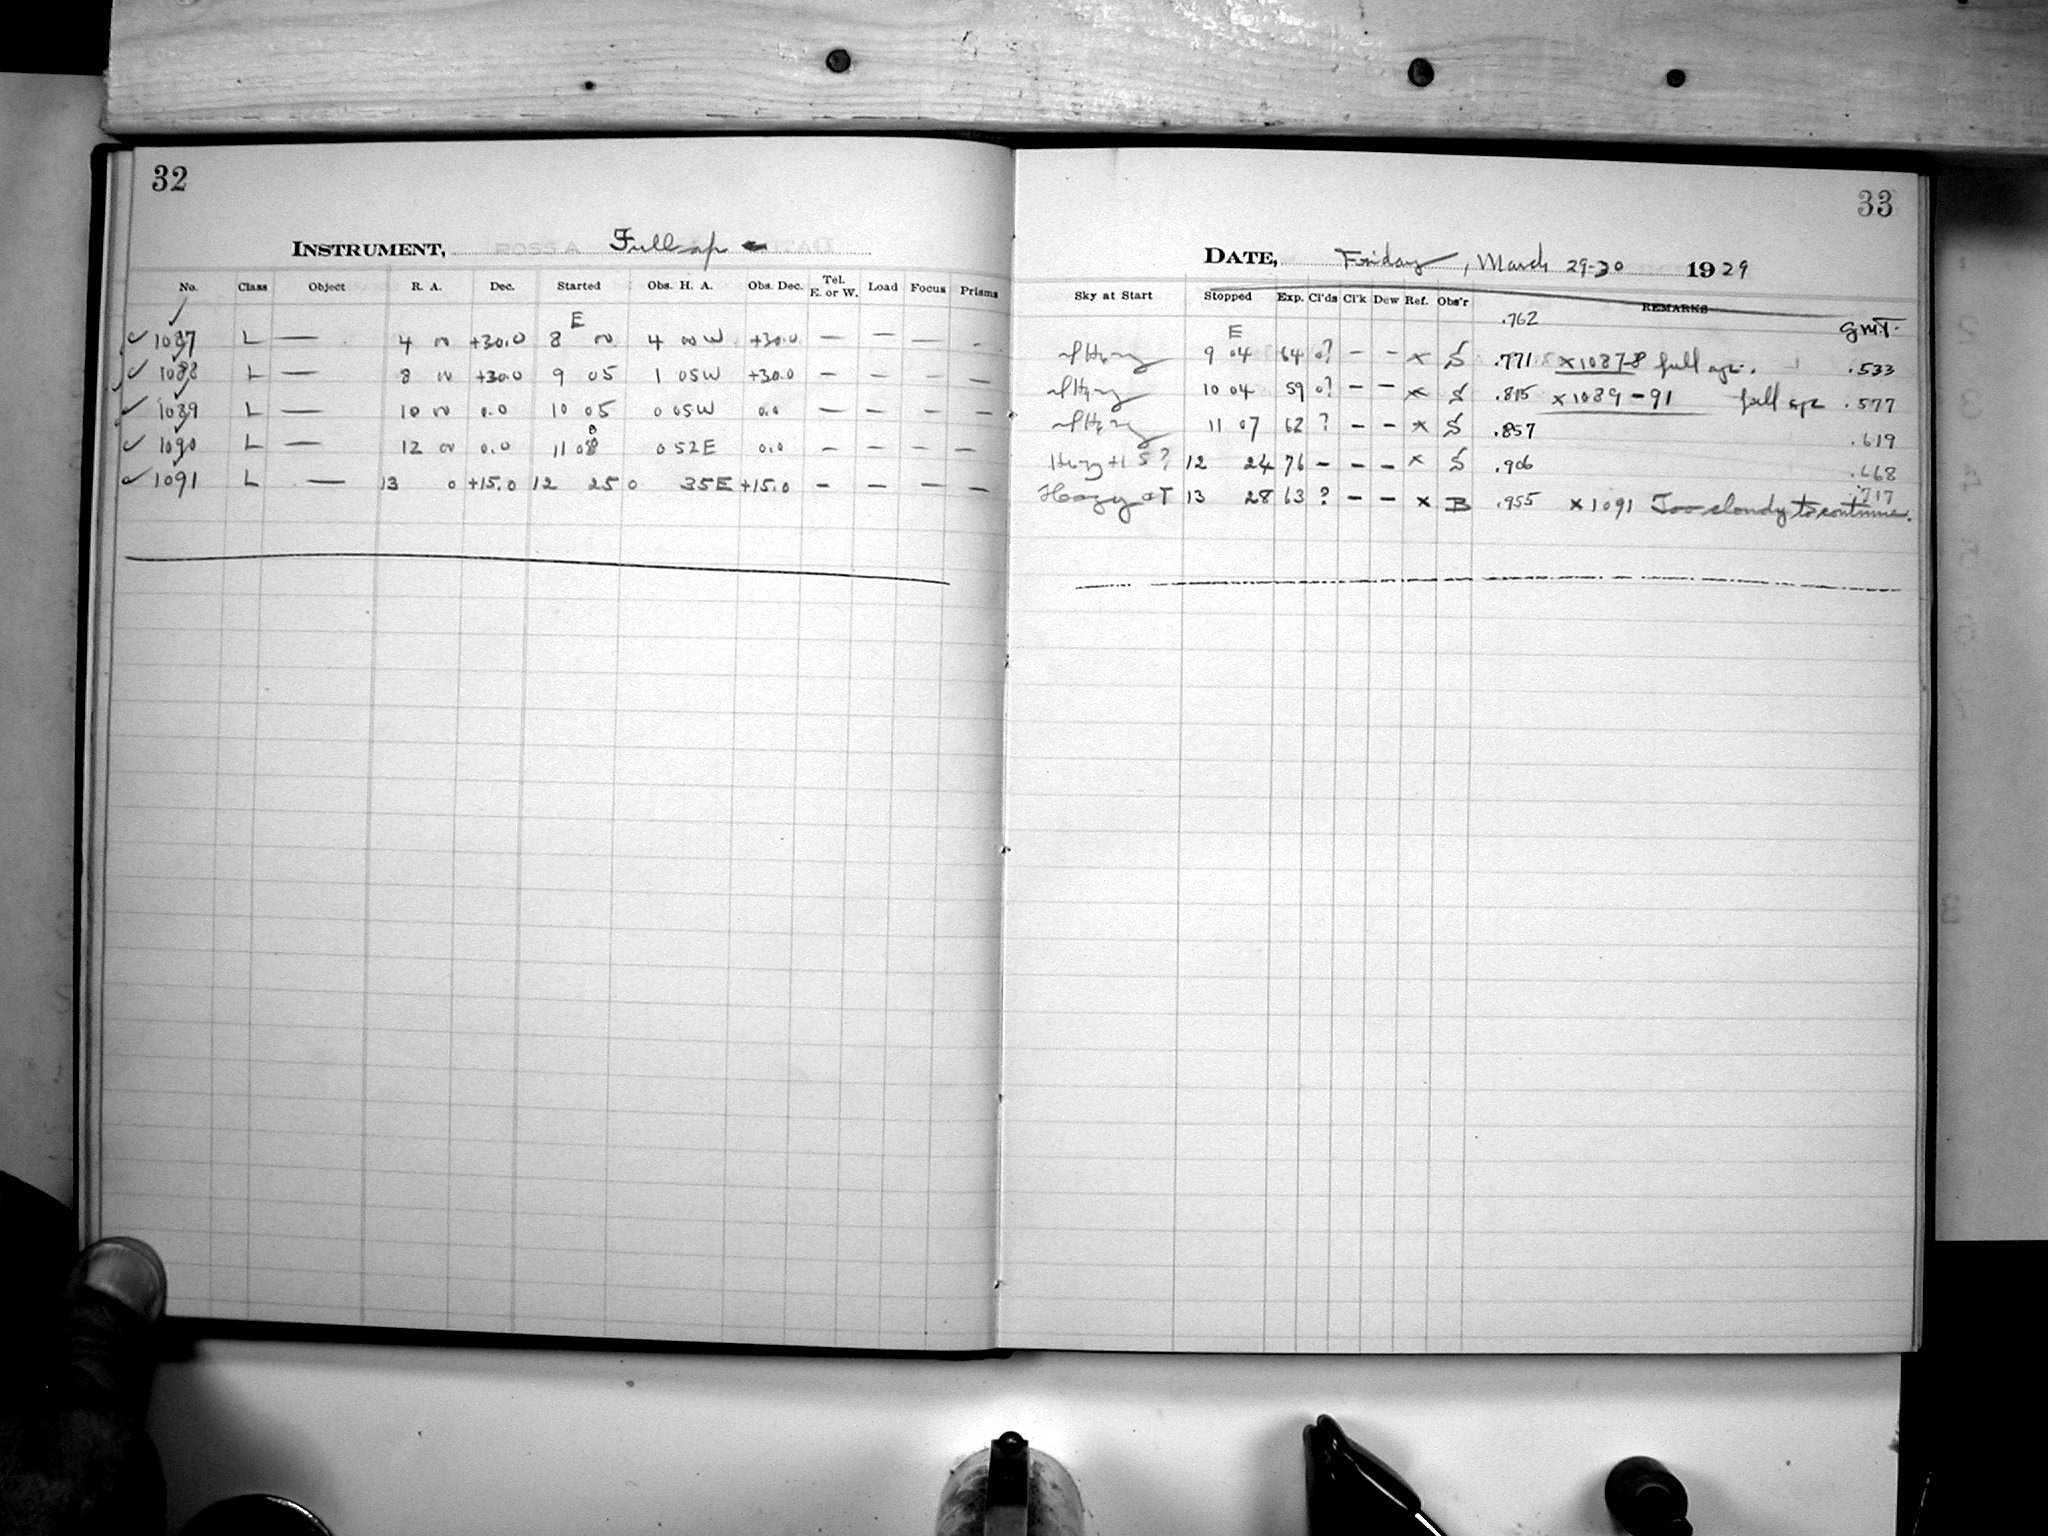 32
INSTRUMENT, ROSS A Full ap
No. Class Object R. A. Dec. Started Obs. H. A. Obs. Dec. Tel. E. or W. Load Focus Prisms
E
✓ 1087 L — 4 00 +30.0 8 00 4 00 W +30.0 — — — -
✓ 1088 L — 8 00 +30.0 9 05 1 05W +30.0 — — — —
✓ 1089 L — 10 00 0.0 10 05 0 05W 0.0 — — — —
✓ 1090 L — 12 00 0.0 11 08 0 52E 0.0 — — — —
✓ 1091 L — 13 0 +15.0 12 25 0 35E +15.0 — — — —
33
DATE, Friday, March 29-30 1929
Sky at Start Stopped Exp. Cl'ds Cl'k Dew Ref. Obs'r REMARKS
E .762 GMT.
9 04 64 0? — — x S .771 x1087-8 full ap. .533
10 04 59 0? — — x S .815 x1089-91 full ap .577
11 07 62 ? — — x S .857 .619
12 24 76 — — — x S .906 .668
Hazy at 13 28 63 ? — — x B .955 x1091 Too cloudy to continue. .717